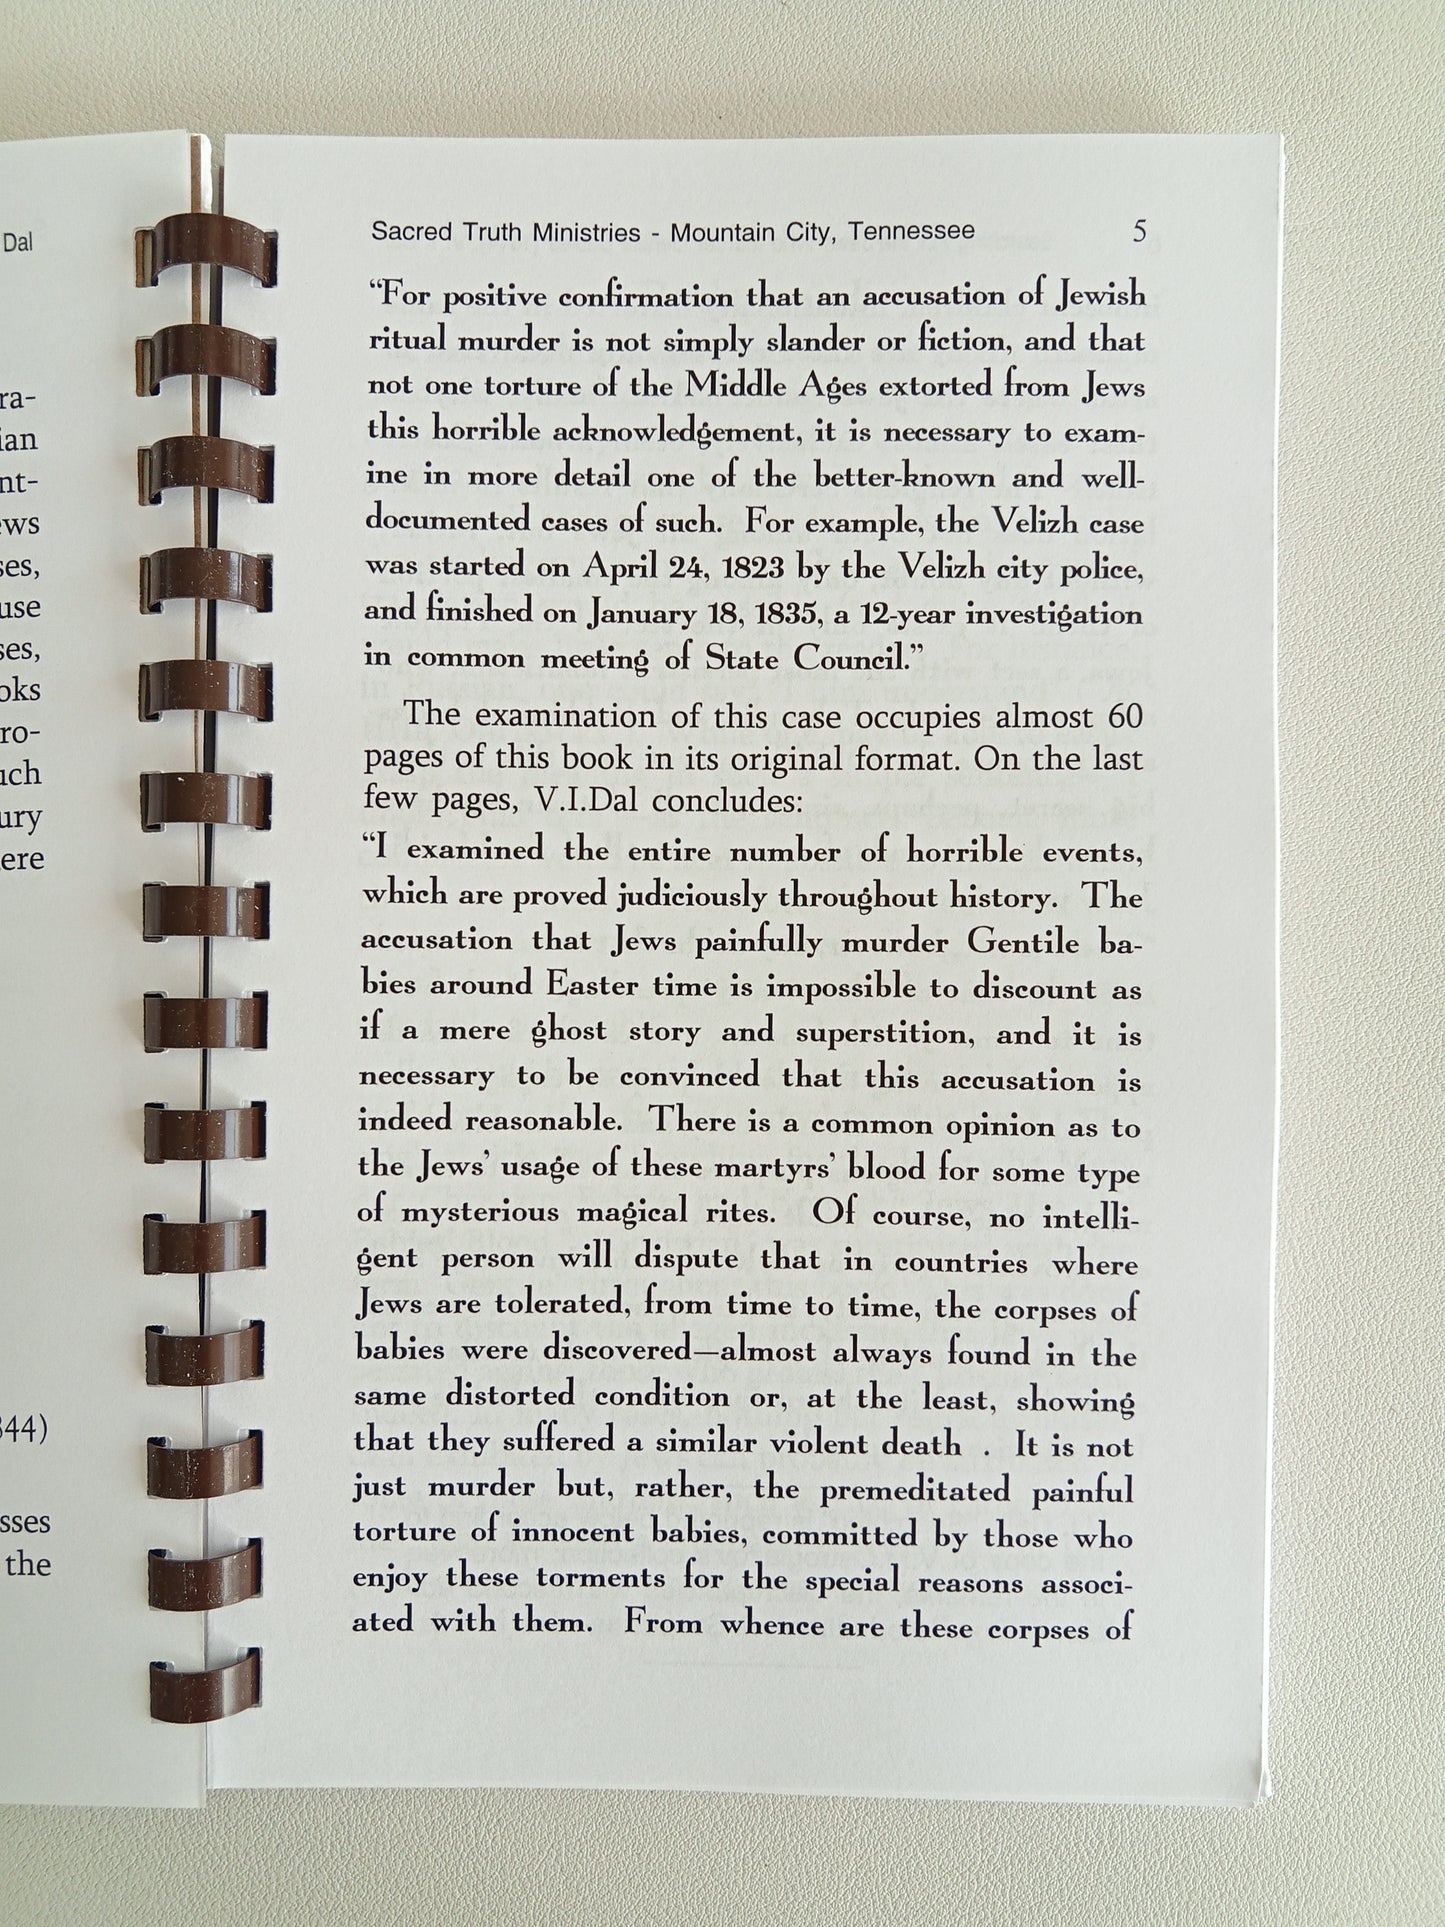 Dal
ra-
ian
nt-
ews
ses,
use
ses,
oks
ro-
uch
ury
ere
344)
sses
the
Sacred Truth Ministries - Mountain City, Tennessee 5
“For positive confirmation that an accusation of Jewish
ritual murder is not simply slander or fiction, and that
not one torture of the Middle Ages extorted from Jews
this horrible acknowledgement, it is necessary to exam-
ine in more detail one of the better-known and well-
documented cases of such. For example, the Velizh case
was started on April 24, 1823 by the Velizh city police,
and finished on January 18, 1835, a 12-year investigation
in common meeting of State Council.”
The examination of this case occupies almost 60
pages of this book in its original format. On the last
few pages, V.I.Dal concludes:
“I examined the entire number of horrible events,
which are proved judiciously throughout history. The
accusation that Jews painfully murder Gentile ba-
bies around Easter time is impossible to discount as
if a mere ghost story and superstition, and it is
necessary to be convinced that this accusation is
indeed reasonable. There is a common opinion as to
the Jews’ usage of these martyrs’ blood for some type
of mysterious magical rites. Of course, no intelli-
gent person will dispute that in countries where
Jews are tolerated, from time to time, the corpses of
babies were discovered—almost always found in the
same distorted condition or, at the least, showing
that they suffered a similar violent death . It is not
just murder but, rather, the premeditated painful
torture of innocent babies, committed by those who
enjoy these torments for the special reasons associ-
ated with them. From whence are these corpses of